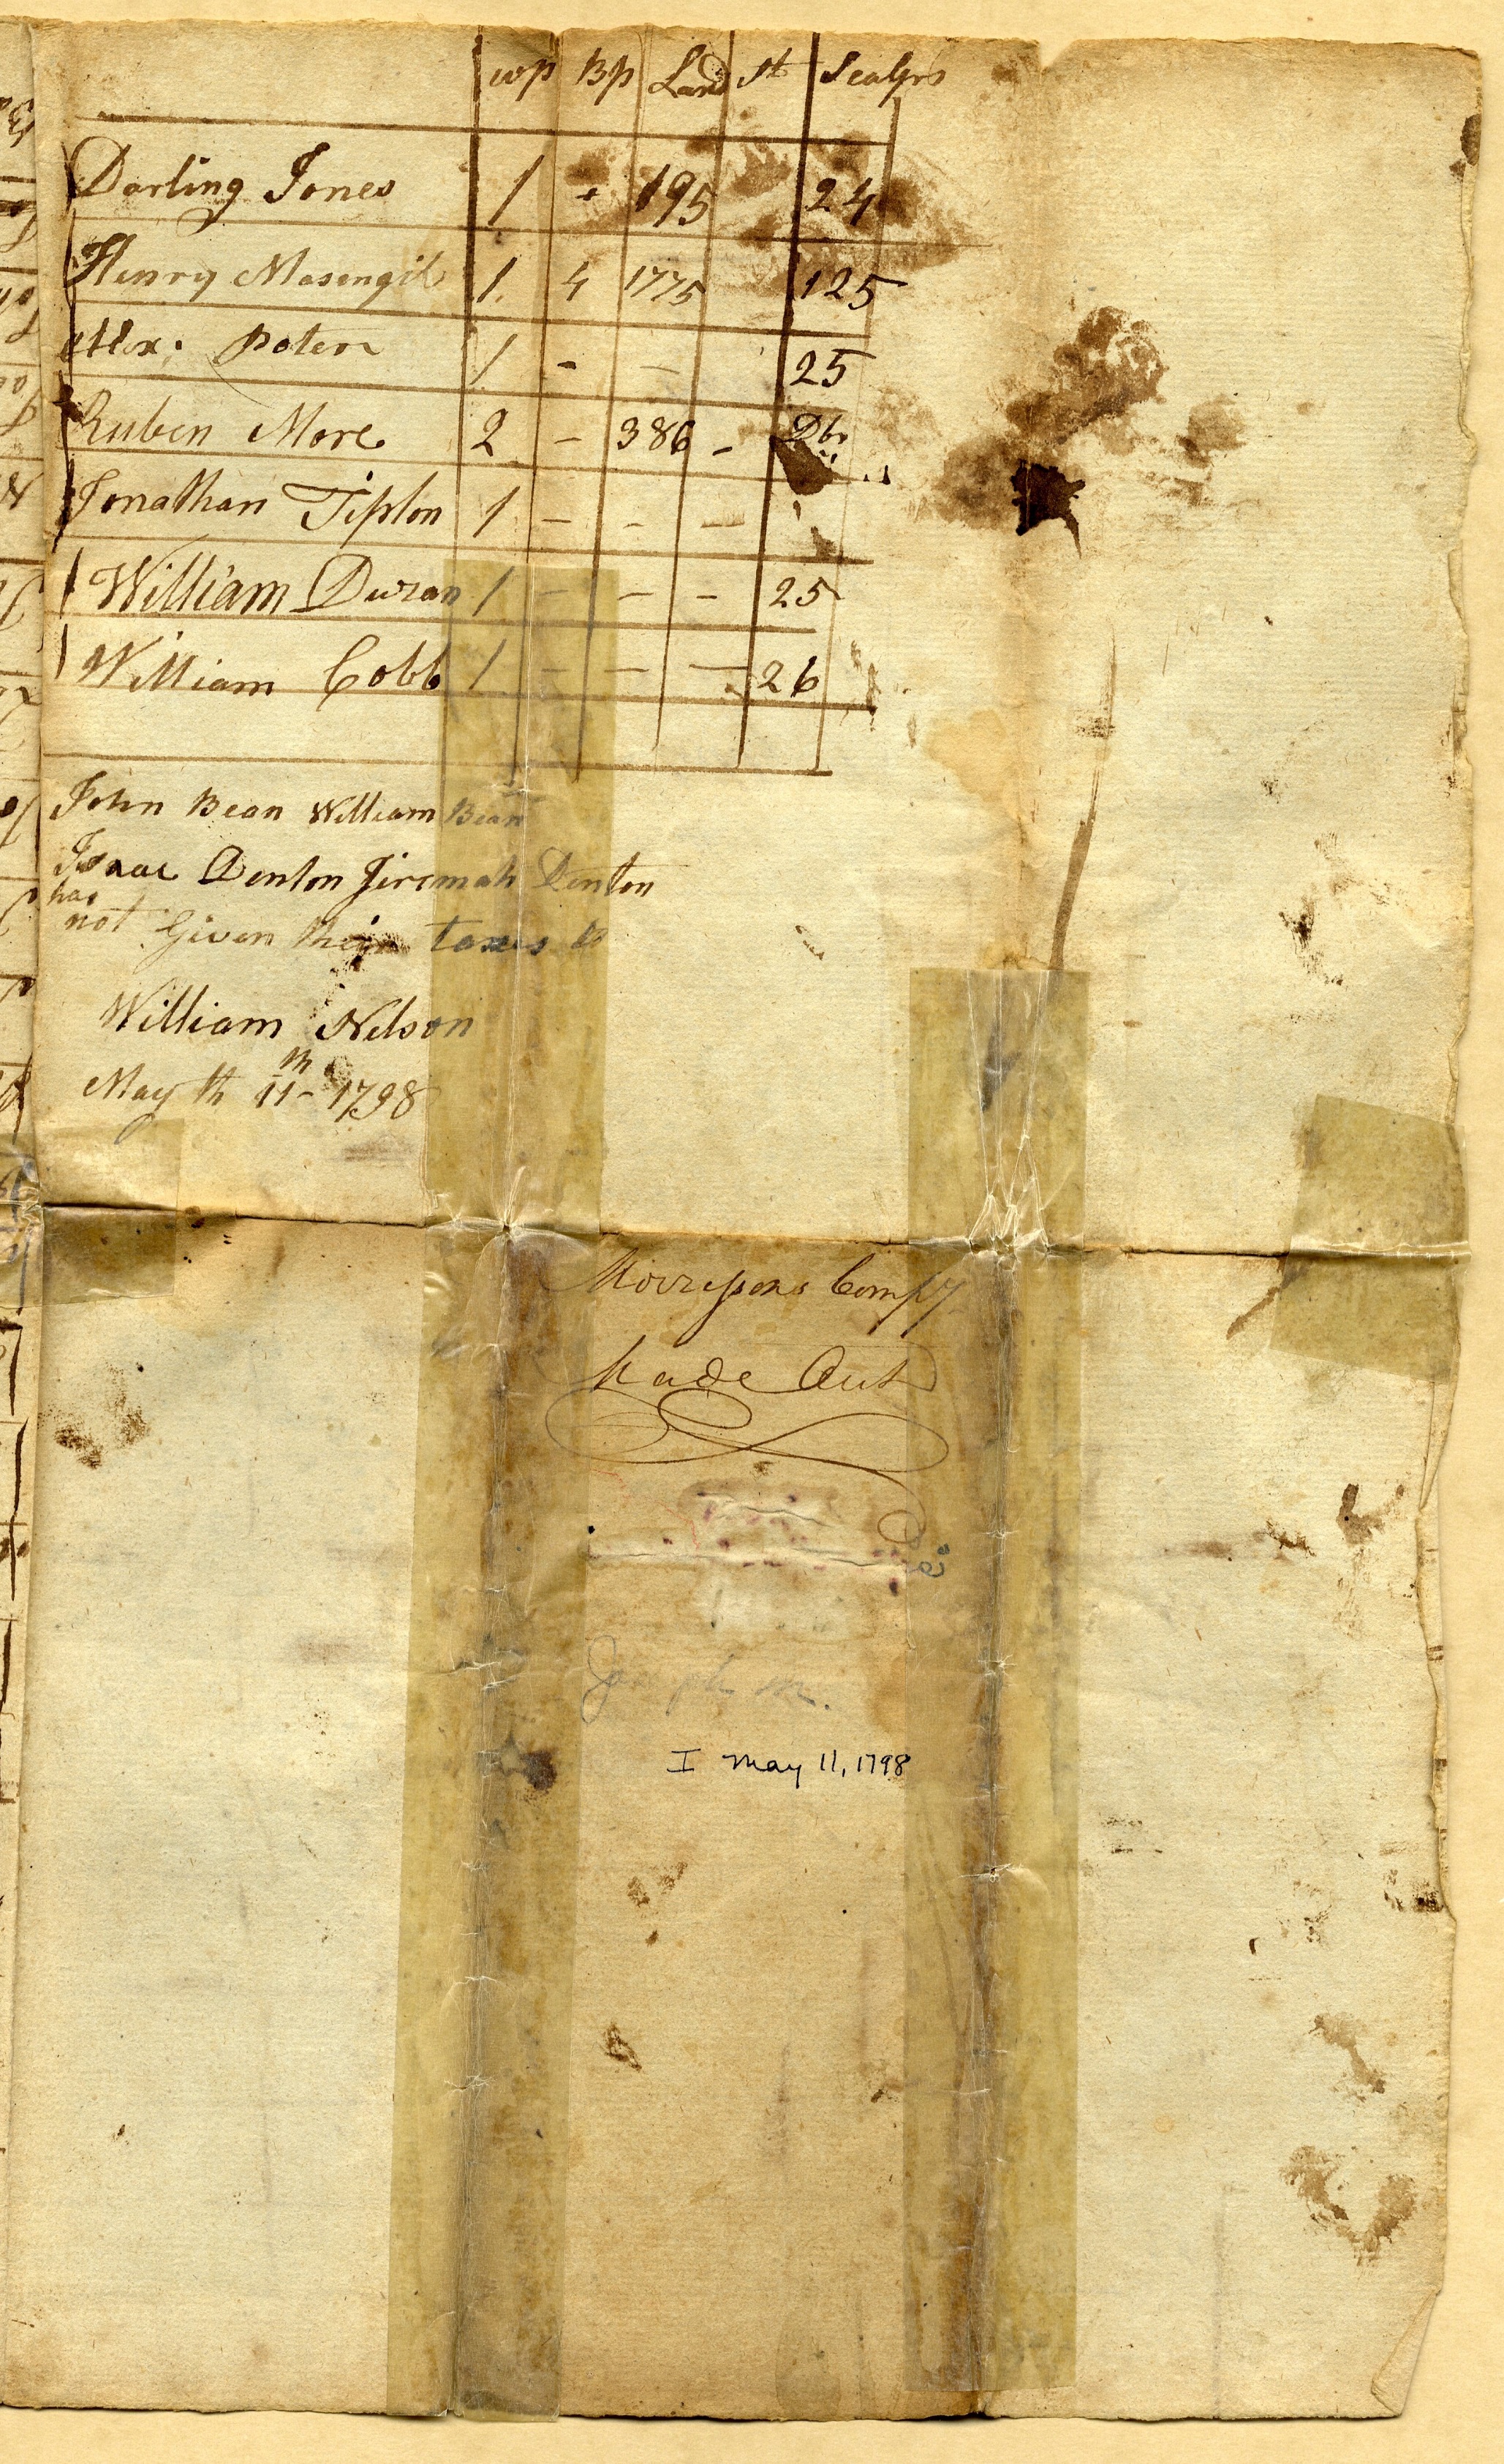 wp Bp Land St Scalps
Darling Jones 1 + 195 24
Henry Masengil 1. 4 1775 125
Alex: Poter 1 - - 25
Ruben More 2 - 386 - Dbr
Jonathan Tipton 1 - - -
William Duran 1 - - - 25
William Cobb 1 - - - 26
John Bean William Bean
Isaac Denton Jiremah Denton
has
not Given their taxes to
William Nelson
May th 11th - 1798
Morrisons Compy
Made Out
Joseph M.
I May 11, 1798